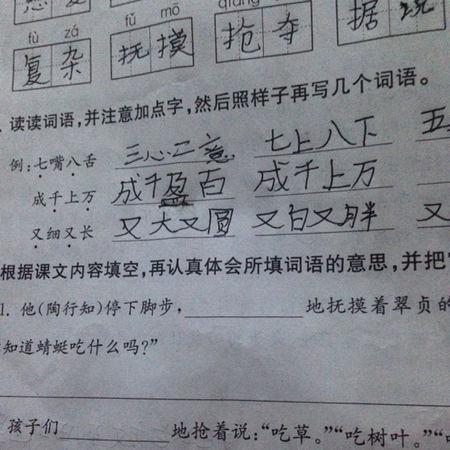 fù zá fǔ mō qiǎng
复杂 抚摸 抢夺 据说
读读词语,并注意加点字,然后照样子再写几个词语。
例:七嘴八舌 三心二意 七上八下 五
成千上万 成千盈百 成千上万
又细又长 又大又圆 又白又胖 又
根据课文内容填空,再认真体会所填词语的意思,并把
1. 他(陶行知)停下脚步,________地抚摸着翠贞的
知道蜻蜓吃什么吗?”
孩子们________地抢着说:“吃草。”“吃树叶。”“